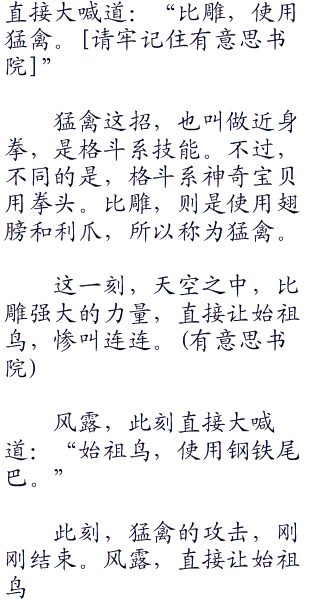 直接大喊道：“比雕，使用
猛禽。[请牢记住有意思书
院]”
猛禽这招，也叫做近身
拳，是格斗系技能。不过，
不同的是，格斗系神奇宝贝
用拳头。比雕，则是使用翅
膀和利爪，所以称为猛禽。
这一刻，天空之中，比
雕强大的力量，直接让始祖
鸟，惨叫连连。(有意思书
院)
风露，此刻直接大喊
道：“始祖鸟，使用钢铁尾
巴。”
此刻，猛禽的攻击，刚
刚结束。风露，直接让始祖
鸟